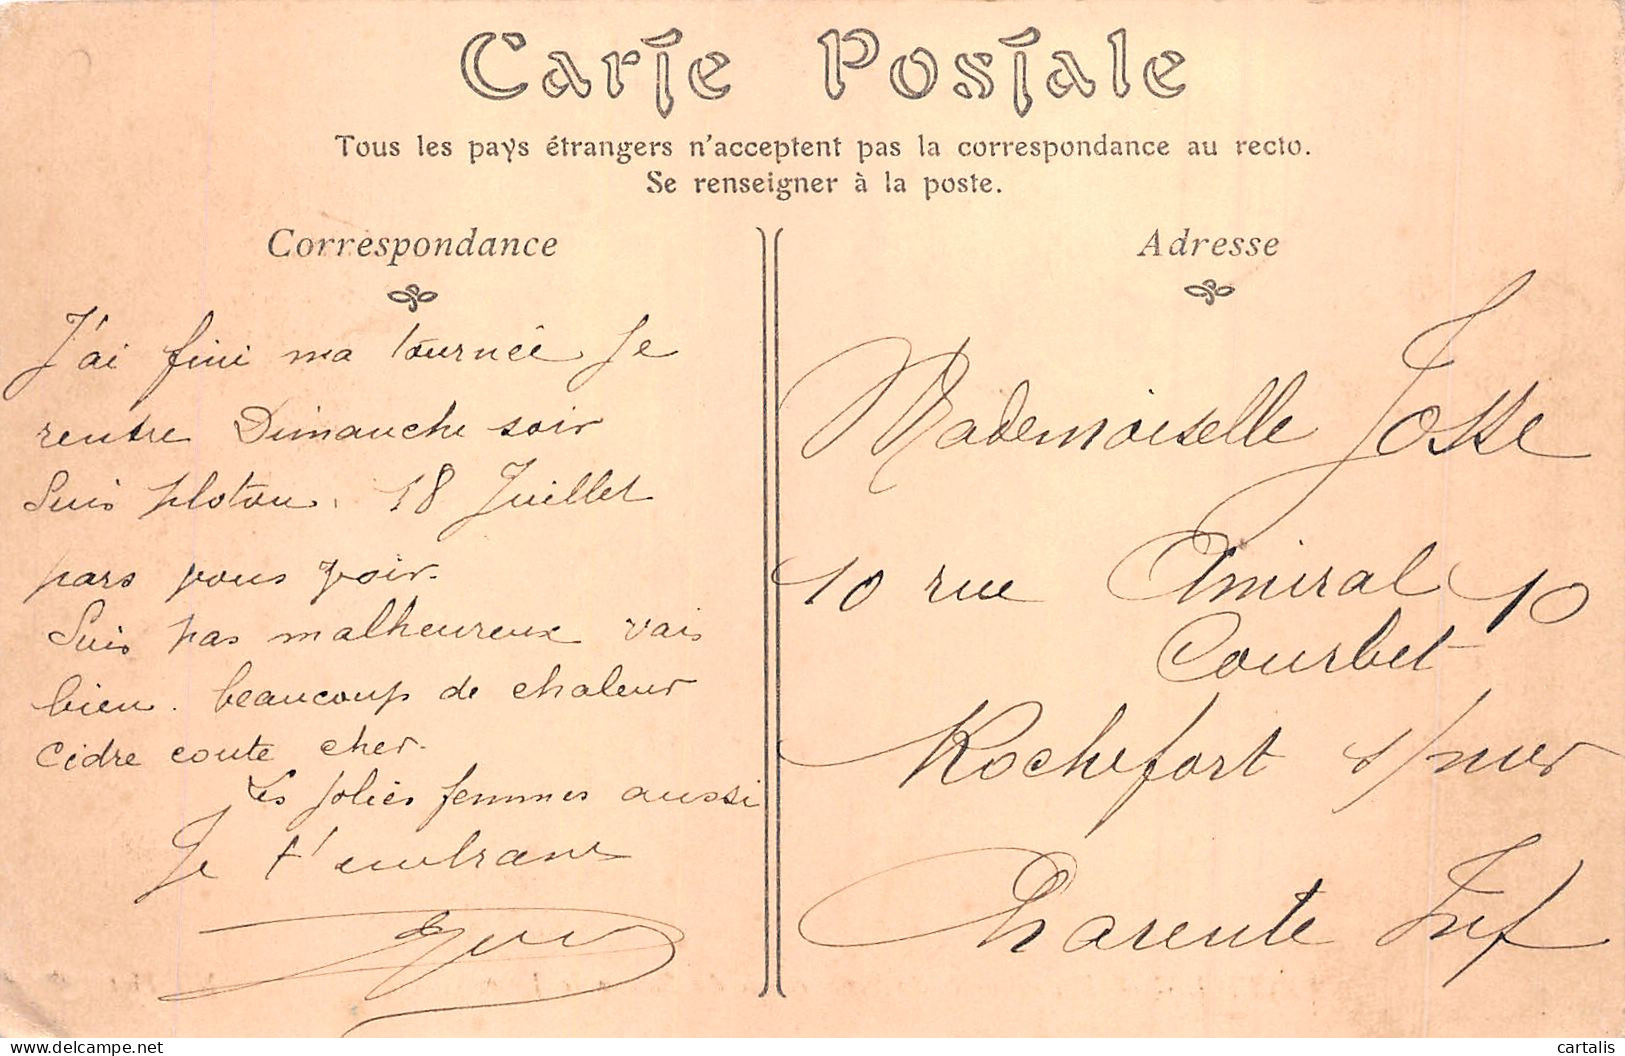 Carte Postale
Tous les pays étrangers n'acceptent pas la correspondance au recto.
Se renseigner à la poste.
Correspondance
J'ai fini ma tournée Je
rentre Dimanche soir
Suis ploton. 18 Juillet
pars vous voir.
Suis pas malheureux vais
bien. beaucoup de chaleur
Cidre coute cher.
Les jolies femmes aussi
Je t'embrasse
Adresse
Mademoiselle Josse
10 rue Amiral 10
Courbet
Rochefort s/mer
Charente Inf
cartalis